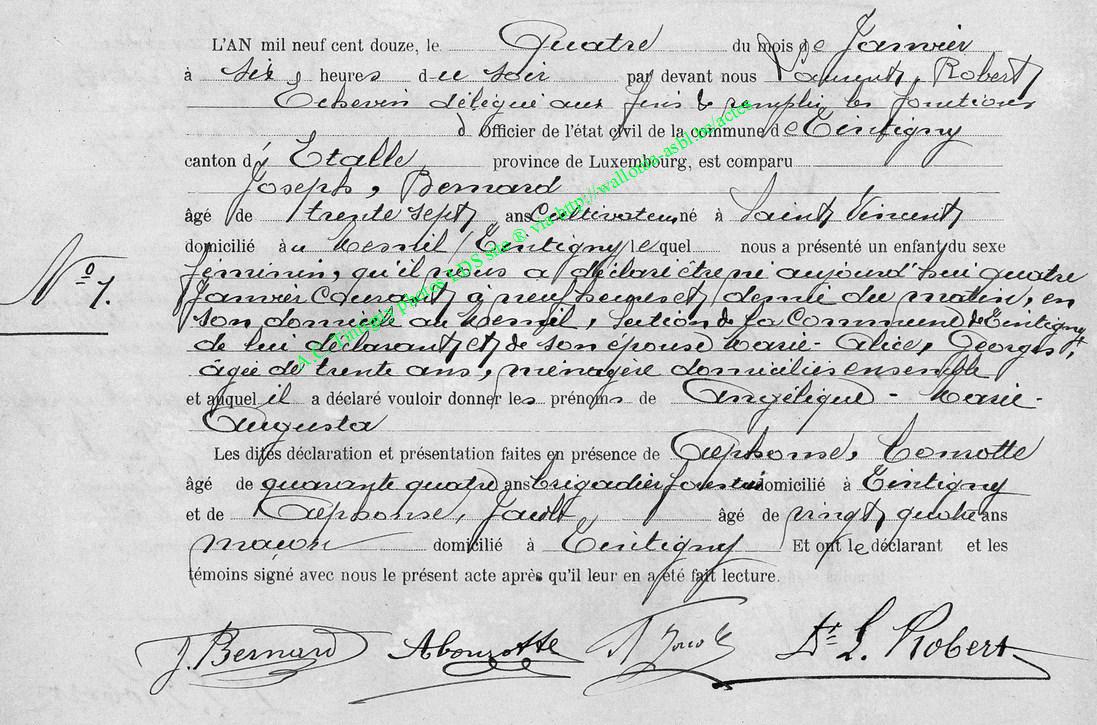 L'AN mil neuf cent douze, le Quatre du mois de Janvier
à six heures du soir par devant nous Laurent, Robert
Echevin délégué aux fins de remplir les fonctions
d' Officier de l'état civil de la commune de Tintigny
canton d' Etalle province de Luxembourg, est comparu
Joseph, Bernard
âgé de trente sept ans Cultivateur né à Saint Vincent
domicilié au Mesnil Tintigny lequel nous a présenté un enfant du sexe
N° 1.
féminin, qu'il nous a déclaré être né aujourd'hui quatre
Janvier Courant à neuf heures et demie du matin, en
son domicile au Mesnil, Section de la Commune de Tintigny,
de lui déclarant et de son épouse Marie-Alice, Georges,
âgée de trente ans, ménagère domiciliés ensemble
et auquel il a déclaré vouloir donner les prénoms de Angélique - Marie -
Augusta
Les dites déclaration et présentation faites en présence de Alphonse,
âgé de quarante quatre ans brigadier forestier domicilié à Tintigny
et de Alphonse, Jacob âgé de vingt quatre ans
maçon domicilié à Tintigny Et ont le déclarant et les
témoins signé avec nous le présent acte après qu'il leur en a été fait lecture.
J. Bernard A Jacob Dr L. Robert
A.C. Tintigny photos LDS site ® via http://wallonia-asbl.be/actes